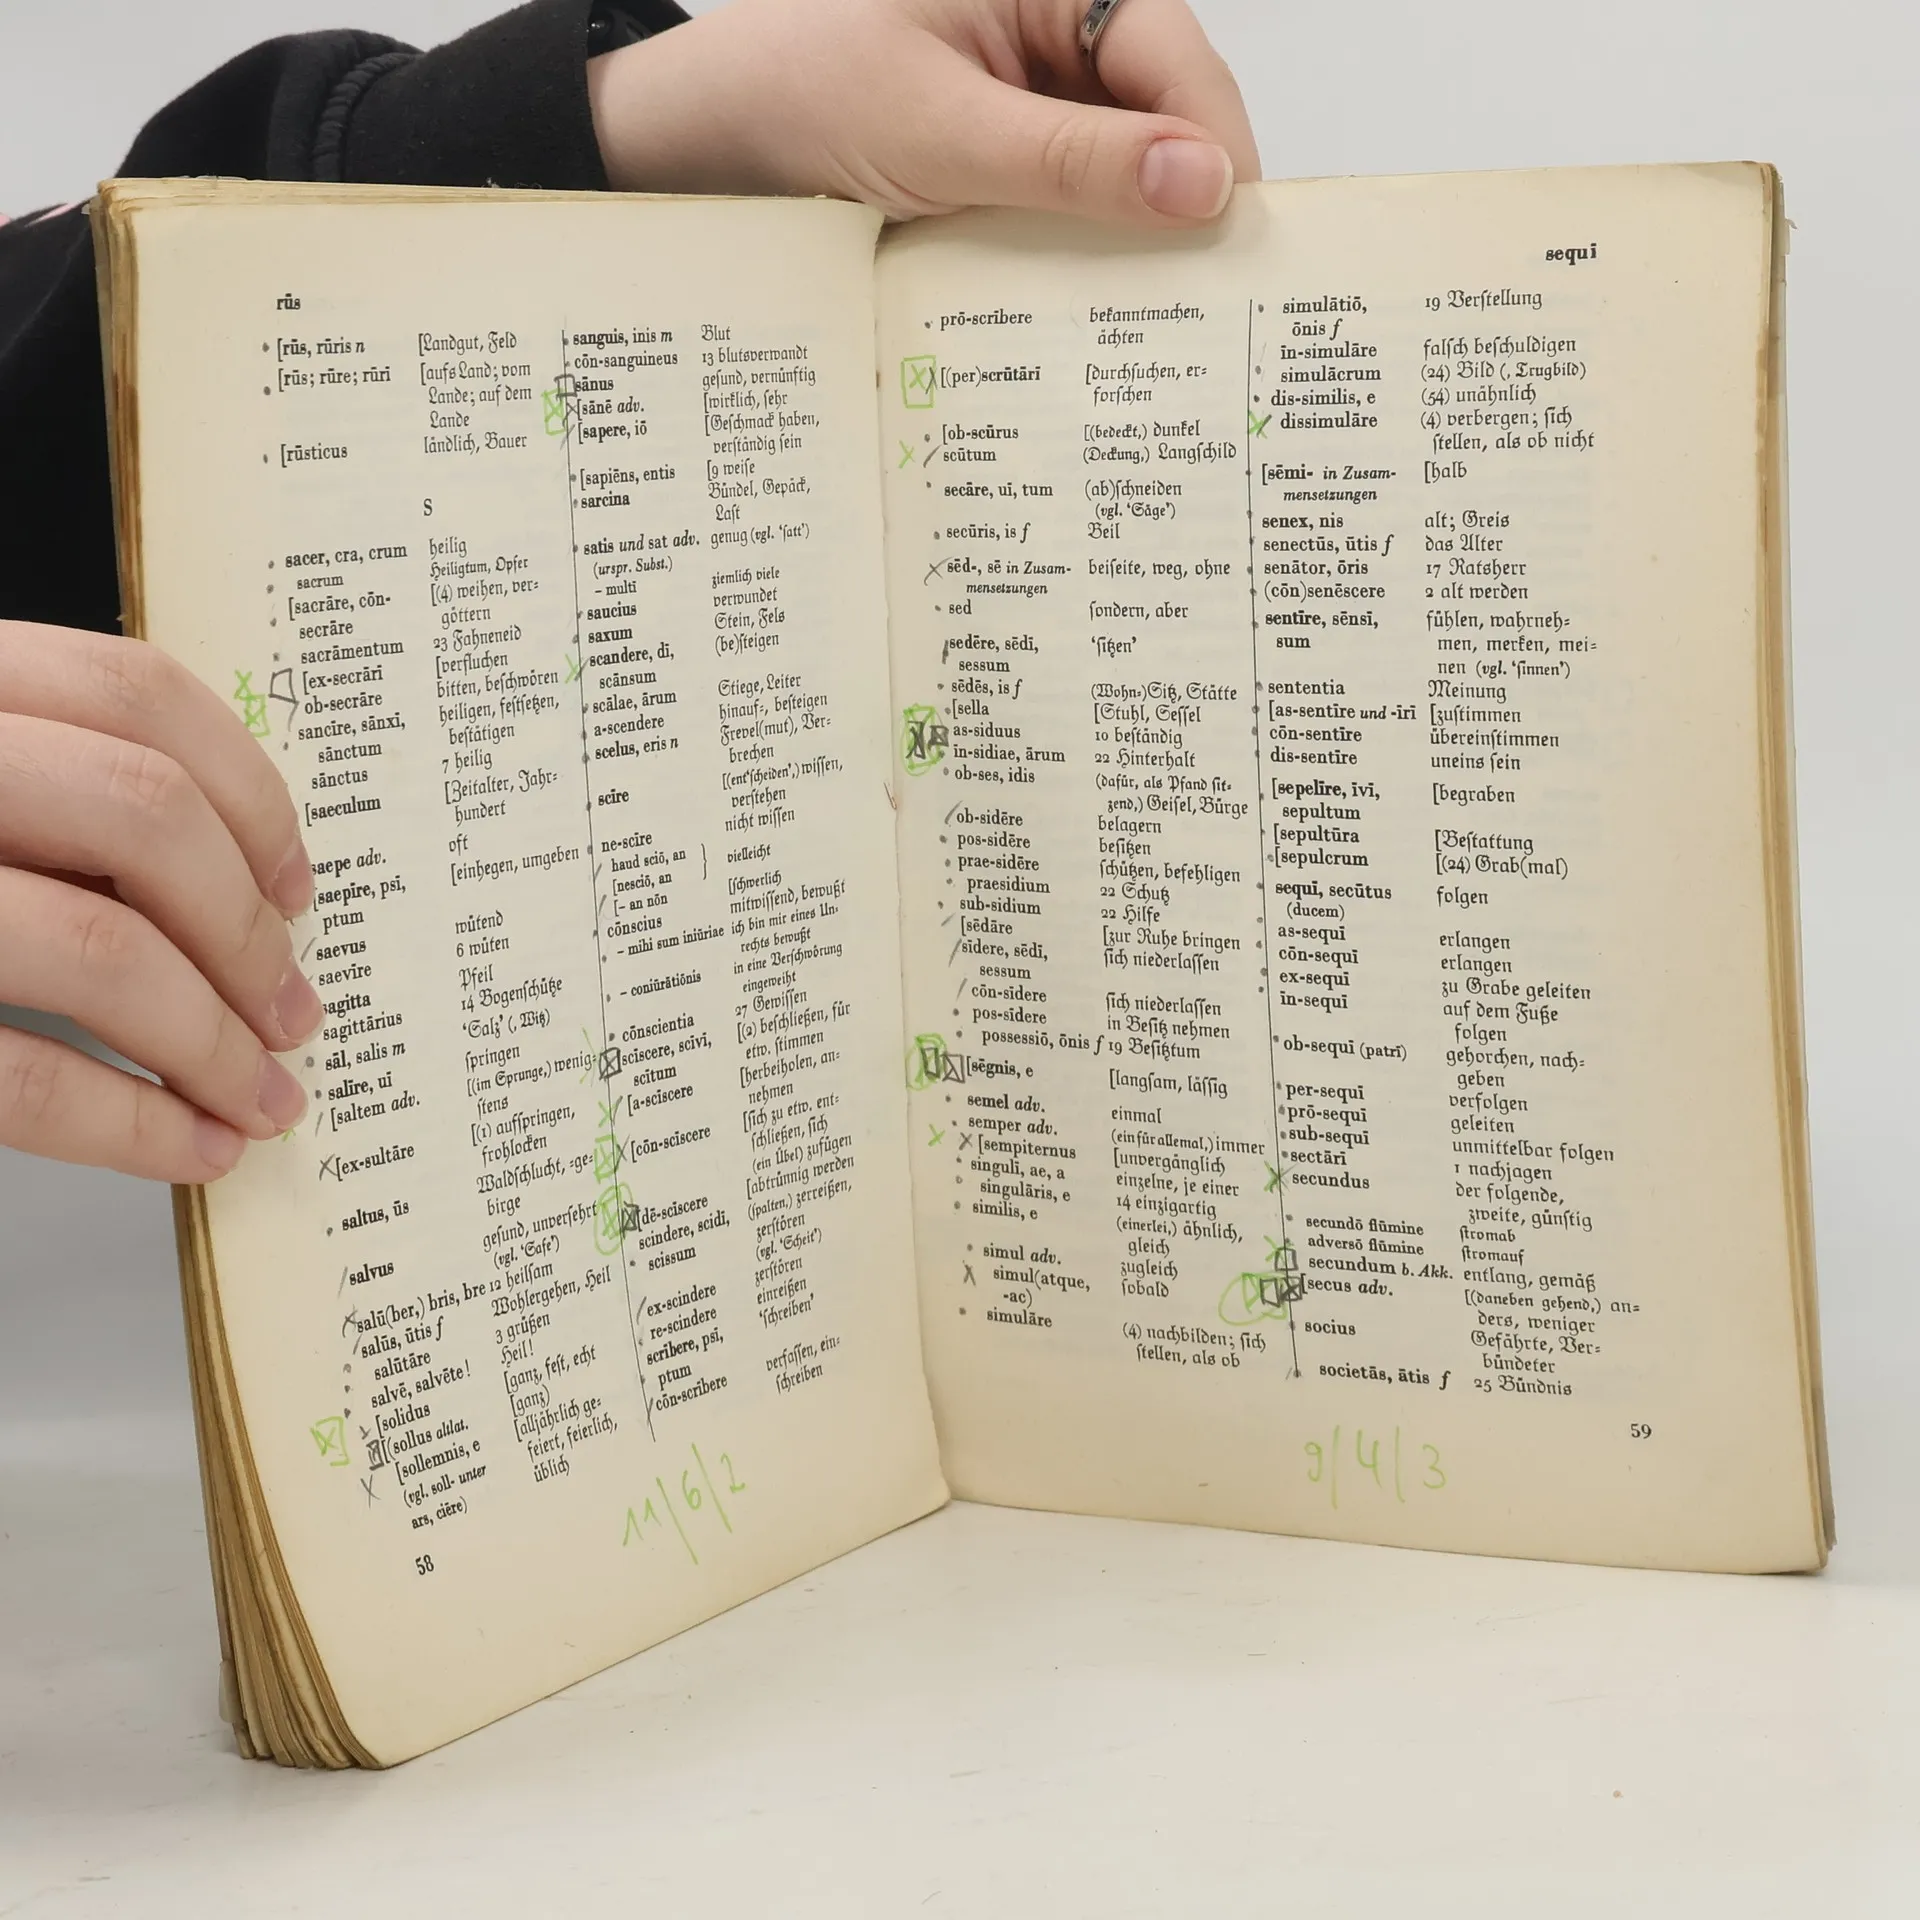 rūs
[rūs, rūris n [Landgut, Feld
[rūs; rūre; rūrī [aufs Land; vom
Lande; auf dem
Lande
[rūsticus ländlich, Bauer
S
sacer, cra, crum heilig
sacrum Heiligtum, Opfer
[sacrāre, cōn- [(4) weihen, ver-
secrāre göttern
sacrāmentum 23 Fahneneid
[ex-secrārī [verfluchen
ob-secrāre bitten, beschwören
sancīre, sānxī, heiligen, festsetzen,
sānctum bestätigen
sānctus 7 heilig
[saeculum [Zeitalter, Jahr-
hundert
saepe adv. oft
[saepīre, psī, [einhegen, umgeben
ptum
saevus wütend
saevīre 6 wüten
sagitta Pfeil
sagittārius 14 Bogenschütze
sāl, salis m ‘Salz’ (, Witz)
salīre, uī springen
[saltem adv. [(im Sprunge,) wenig-
stens
[ex-sultāre [(1) aufspringen,
frohlocken
saltus, ūs Waldschlucht, -ge-
birge
salvus gesund, unversehrt
(vgl. ‘Safe’)
salū(ber,) bris, bre 12 heilsam
salūs, ūtis f Wohlergehen, Heil
salūtāre 3 grüßen
salvē, salvēte! Heil!
[solidus [ganz, fest, echt
[(sollus altlat. [ganz)
[sollemnis, e [alljährlich ge-
(vgl. soll- unter feiert, feierlich,
ars, ciēre) üblich
58
sanguis, inis m Blut
cōn-sanguineus 13 blutsverwandt
sānus gesund, vernünftig
[sānē adv. [wirklich, sehr
[sapere, iō [Geschmack haben,
verständig sein
[sapiēns, entis [9 weise
sarcina Bündel, Gepäck,
Last
satis und sat adv. genug (vgl. ‘satt’)
(urspr. Subst.)
– multī ziemlich viele
saucius verwundet
saxum Stein, Fels
scandere, dī, (be)steigen
scānsum
scālae, ārum Stiege, Leiter
a-scendere hinauf-, besteigen
scelus, eris n Frevel(mut), Ver-
brechen
scīre [(ent‘scheiden’,) wissen,
verstehen
ne-scīre nicht wissen
haud sciō, an } vielleicht
[nesciō, an
[– an nōn [schwerlich
cōnscius mitwissend, bewußt
– mihi sum iniūriae ich bin mir eines Un-
rechts bewußt
– coniūrātiōnis in eine Verschwörung
eingeweiht
cōnscientia 27 Gewissen
[scīscere, scīvī, [(2) beschließen, für
scītum etw. stimmen
[a-scīscere [herbeiholen, an-
nehmen
[cōn-scīscere [sich zu etw. ent-
schließen, sich
(ein Übel) zufügen
[dē-scīscere [abtrünnig werden
scindere, scidī, (spalten,) zerreißen,
scissum zerstören
(vgl. ‘Scheit’)
ex-scindere zerstören
re-scindere einreißen
scrībere, psī, ‘schreiben’
ptum
cōn-scrībere verfassen, ein-
schreiben
11/6/2
sequī
prō-scrībere bekanntmachen,
ächten
[(per)scrūtārī [durchsuchen, er-
forschen
[ob-scūrus [(bedeckt,) dunkel
scūtum (Deckung,) Langschild
secāre, uī, tum (ab)schneiden
(vgl. ‘Säge’)
secūris, is f Beil
sēd-, sē in Zusam- beiseite, weg, ohne
mensetzungen
sed sondern, aber
sedēre, sēdī, ‘sitzen’
sessum
sēdēs, is f (Wohn-)Sitz, Stätte
[sella [Stuhl, Sessel
as-siduus 10 beständig
īn-sidiae, ārum 22 Hinterhalt
ob-ses, idis (dafür, als Pfand sit-
zend,) Geisel, Bürge
ob-sidēre belagern
pos-sidēre besitzen
prae-sidēre schützen, befehligen
praesidium 22 Schutz
sub-sidium 22 Hilfe
[sēdāre [zur Ruhe bringen
sīdere, sēdī, sich niederlassen
sessum
cōn-sīdere sich niederlassen
pos-sīdere in Besitz nehmen
possessiō, ōnis f 19 Besitztum
[sēgnis, e [langsam, lässig
semel adv. einmal
semper adv. (ein für allemal,) immer
[sempiternus [unvergänglich
singulī, ae, a einzelne, je einer
singulāris, e 14 einzigartig
similis, e (einerlei,) ähnlich,
gleich
simul adv. zugleich
simul(atque, sobald
-ac)
simulāre (4) nachbilden; sich
stellen, als ob
simulātiō, 19 Verstellung
ōnis f
īn-simulāre falsch beschuldigen
simulācrum (24) Bild (, Trugbild)
dis-similis, e (54) unähnlich
dissimulāre (4) verbergen; sich
stellen, als ob nicht
[sēmi- in Zusam- [halb
mensetzungen
senex, nis alt; Greis
senectūs, ūtis f das Alter
senātor, ōris 17 Ratsherr
(cōn)senēscere 2 alt werden
sentīre, sēnsī, fühlen, wahrneh-
sum men, merken, mei-
nen (vgl. ‘sinnen’)
sententia Meinung
[as-sentīre und -īrī [zustimmen
cōn-sentīre übereinstimmen
dis-sentīre uneins sein
[sepelīre, īvī, [begraben
sepultum
[sepultūra [Bestattung
[sepulcrum [(24) Grab(mal)
sequī, secūtus folgen
(ducem)
as-sequī erlangen
cōn-sequī erlangen
ex-sequī zu Grabe geleiten
īn-sequī auf dem Fuße
folgen
ob-sequī (patrī) gehorchen, nach-
geben
per-sequī verfolgen
prō-sequī geleiten
sub-sequī unmittelbar folgen
sectārī 1 nachjagen
secundus der folgende,
zweite, günstig
secundō flūmine stromab
adversō flūmine stromauf
secundum b. Akk. entlang, gemäß
[secus adv. [(daneben gehend,) an-
ders, weniger
socius Gefährte, Ver-
bündeter
societās, ātis f 25 Bündnis
59
9/4/3